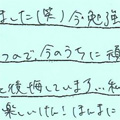 ました(笑)今、勉強
つので、今のうちに頑
と後悔しています…私
楽しいけん！ほんまに